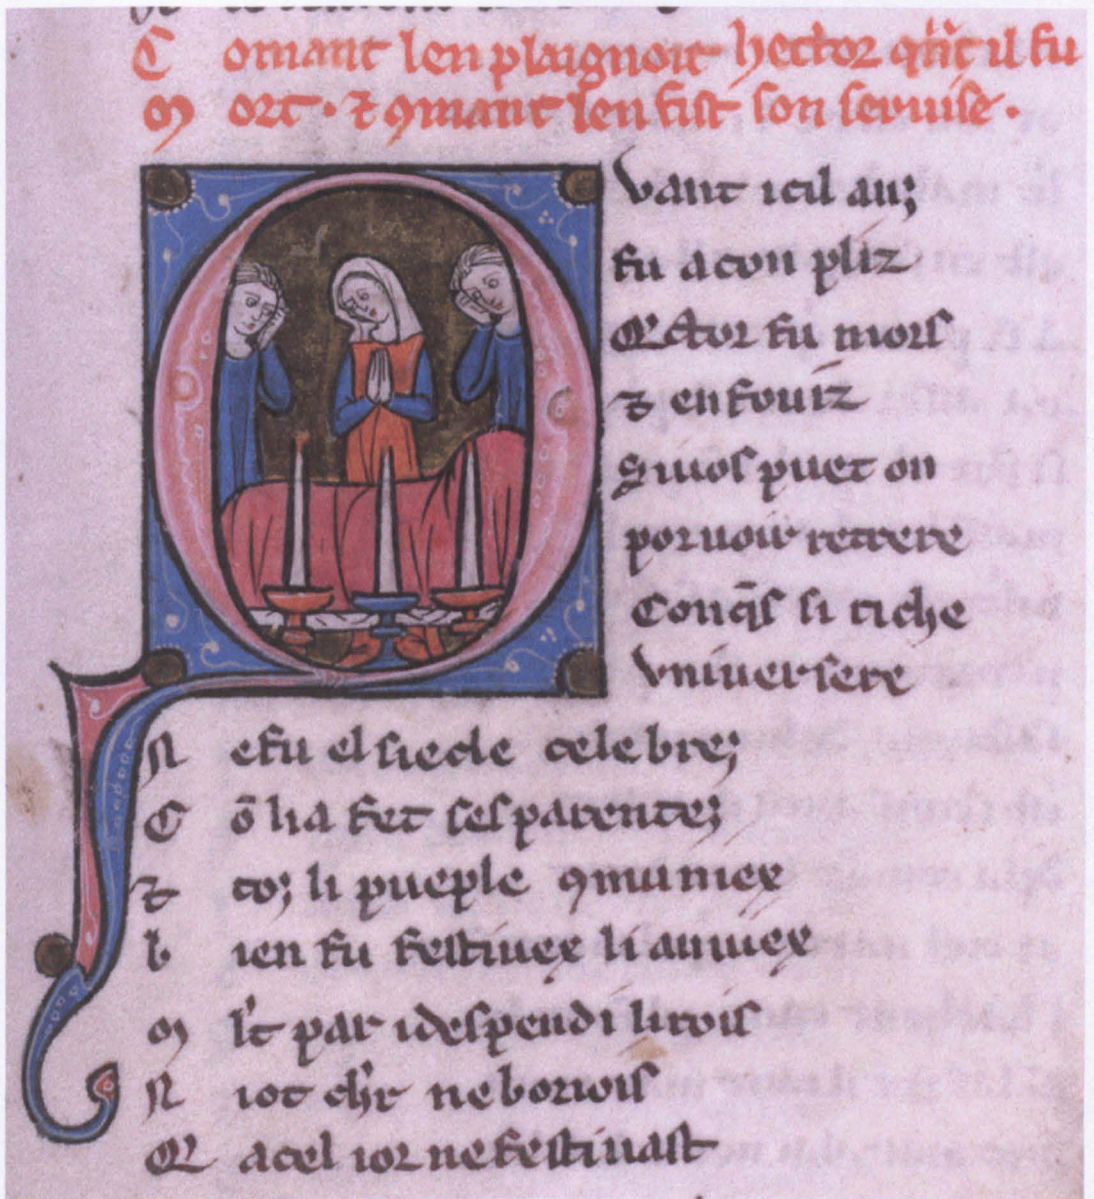 C omant len plaignoit hector qn̄t il fu
M ort · ⁊ ꝯmant len fist son seruise ·
Vant icil anꝫ
fu aconpliz
Q̃ Ector fu mors
⁊ enfouiz
Si uos puet on
por uoir retrere
Conq̄s si riche
vniuersere
N efu el siecle celebreꝫ
C ō li a fet ses parenteꝫ
⁊ toꝫ li pueple ꝯmunıex
b ien fu festiuex li anuex
M lt par i despendi li rois
N i ot chr̄ ne boriois
Q̃ a cel ior ne festiuast